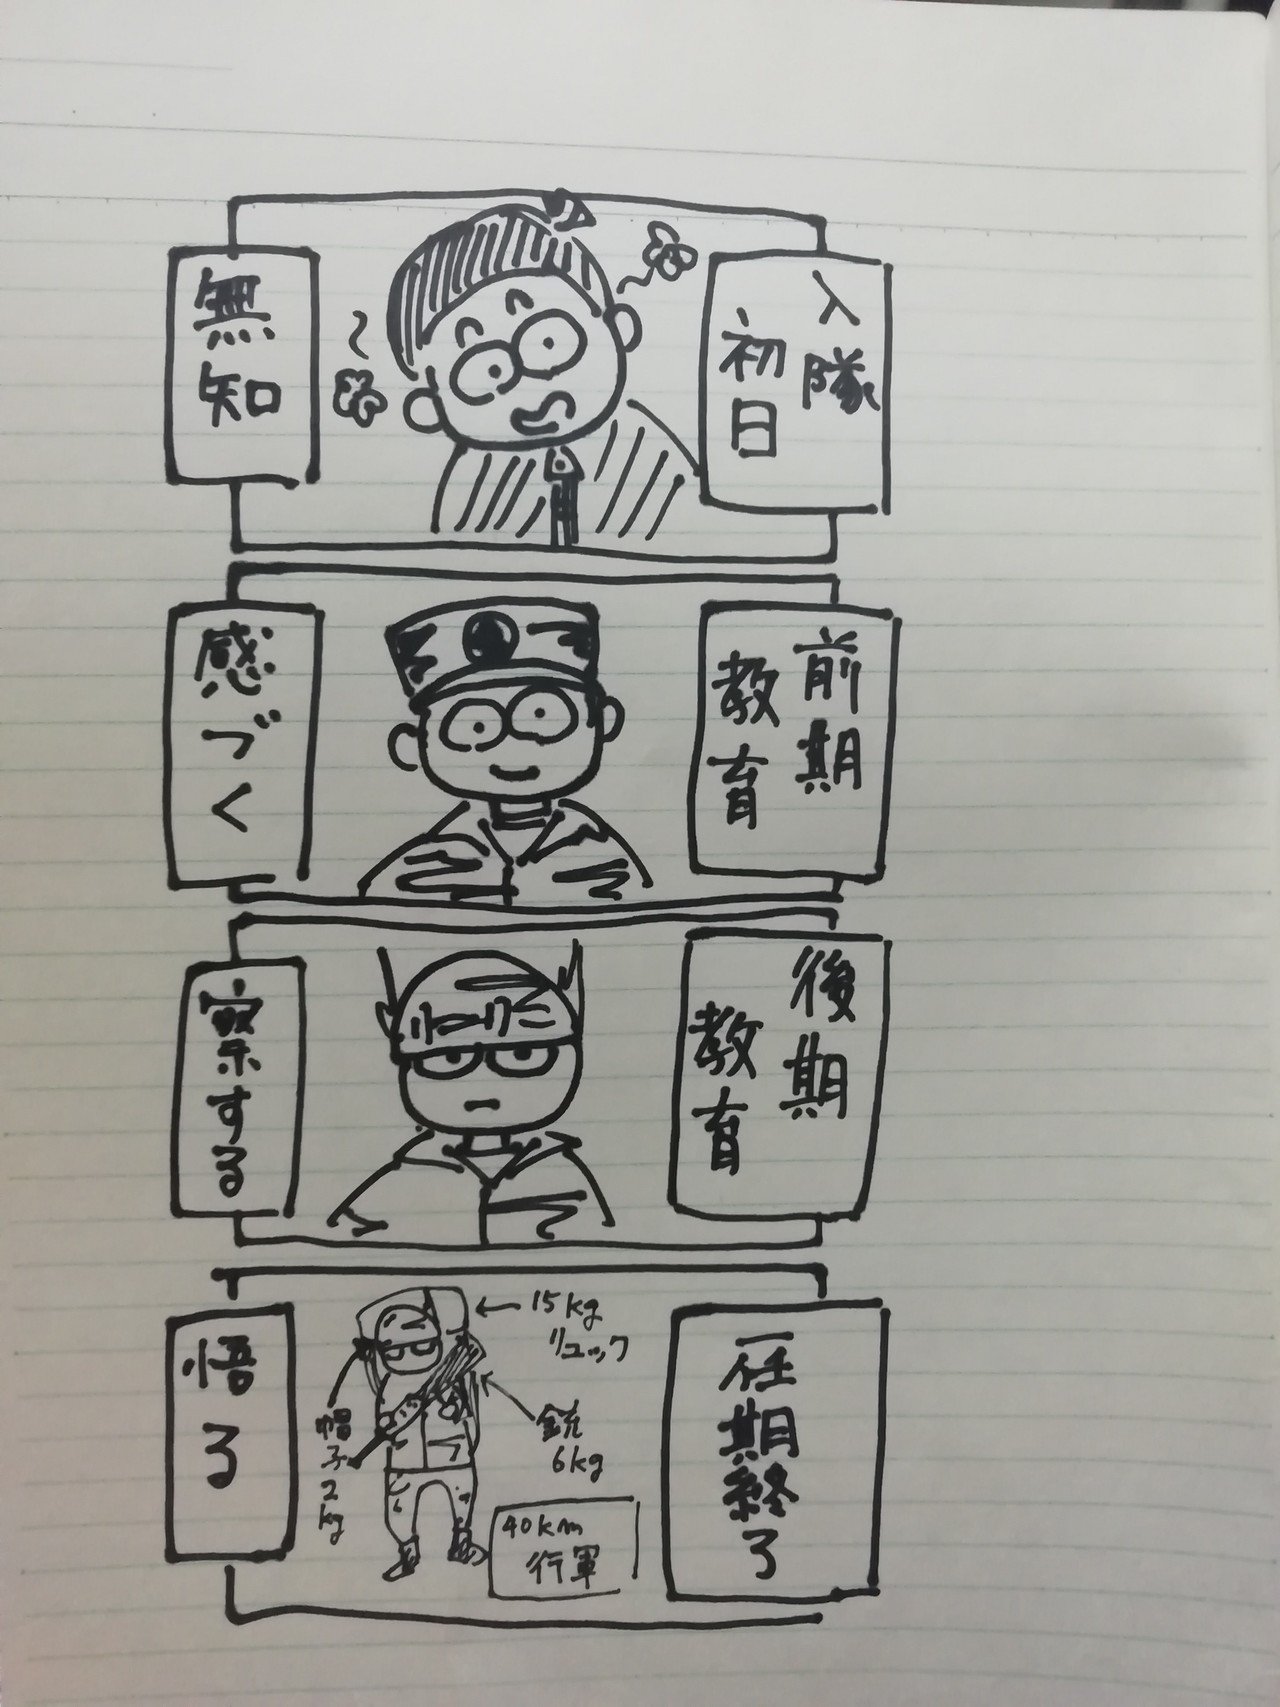 入隊
初日
無知
前期
教育
感づく
後期
教育
察する
一任期終了
15kg
リュック
銃
6kg
帽子2kg
40km
行軍
悟る